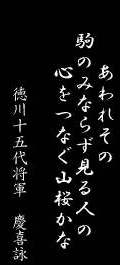 あわれその
駒のみならず見る人の
心をつなぐ山桜かな
徳川十五代将軍　慶喜詠